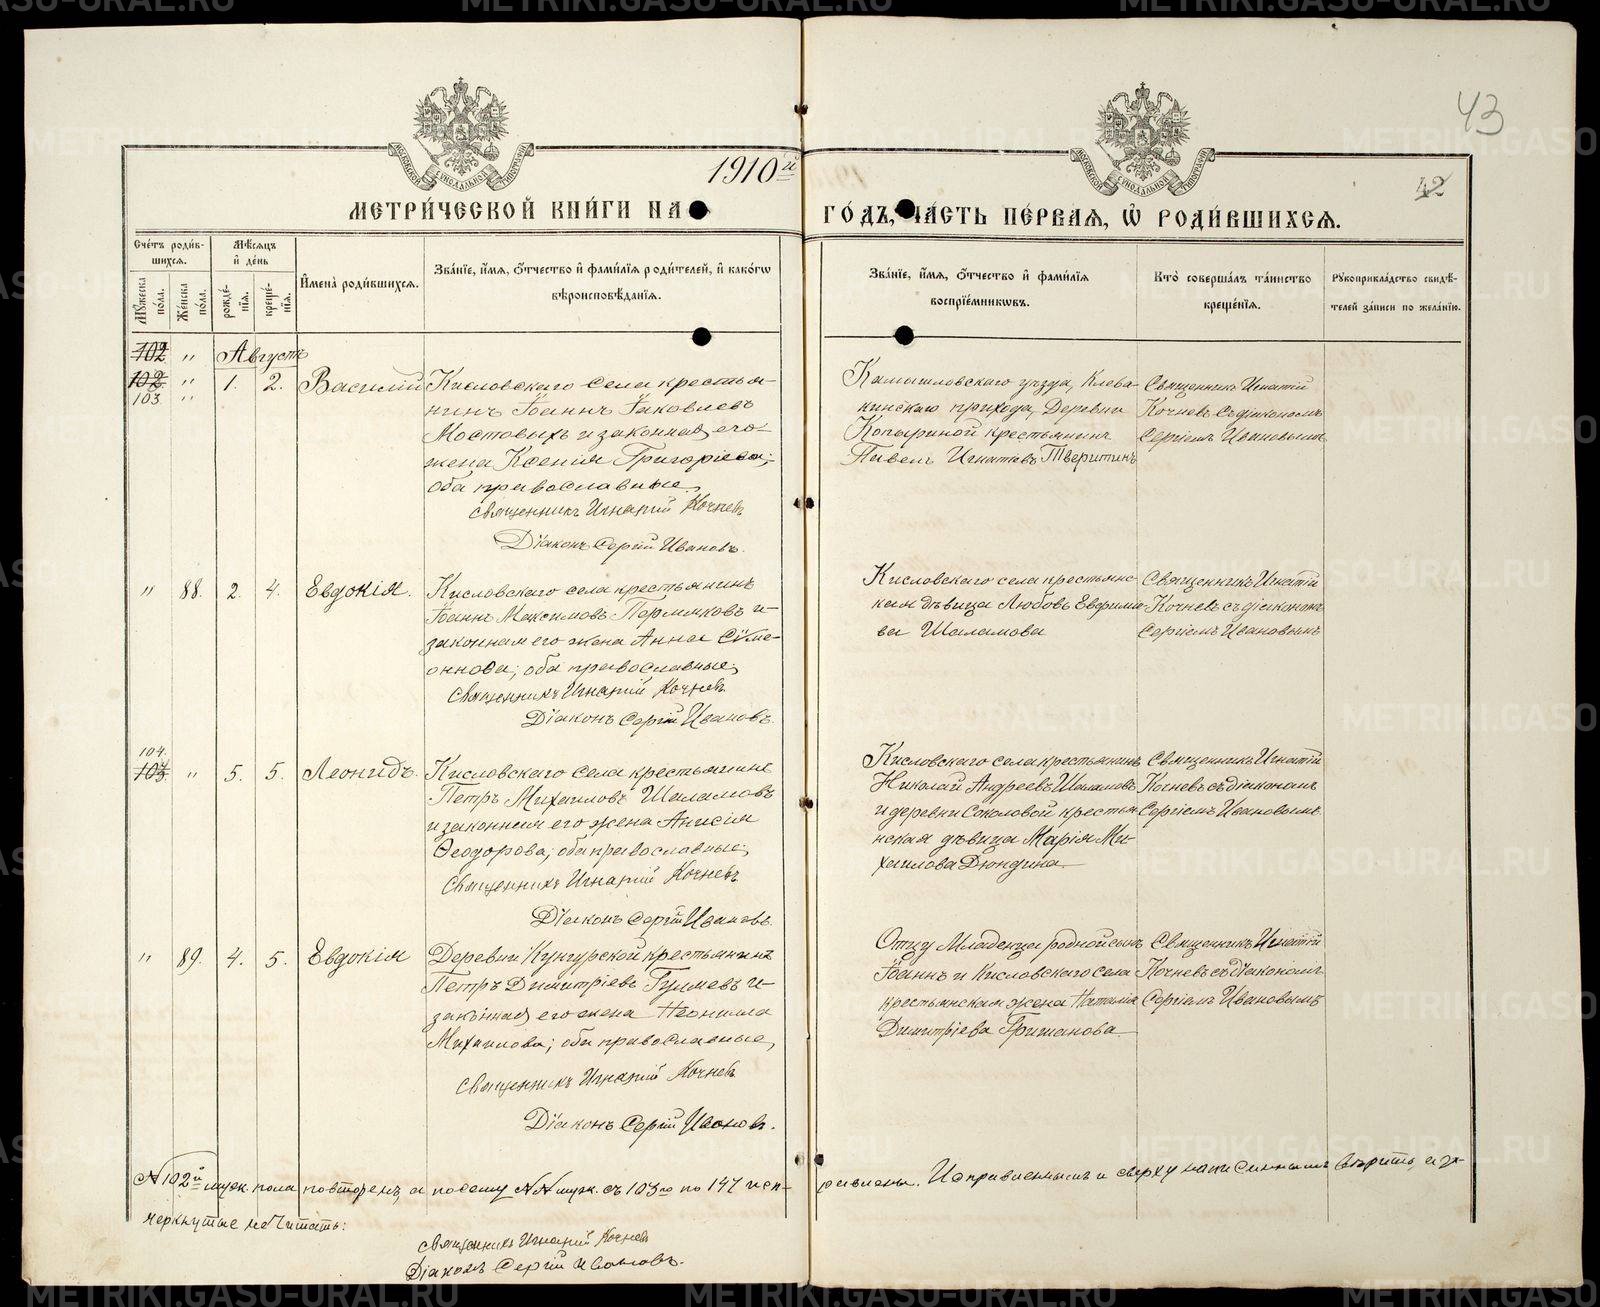 43
42
1910й
МЕТРИЧЕСКОЙ КНИГИ НА
ГОДЪ, ЧАСТЬ ПЕРВАЯ, Ѡ РОДИВШИХСЯ.
Счетъ родив-
шихся.
Мѣсяцъ
и день
Мужеска
пола.
Женска
пола.
рожде-
нія.
креще-
нія.
Имена родившихся.
Званіе, имя, отчество и фамилія родителей, и какогѡ
вѣроисповѣданія.
Званіе, имя, отчество и фамилія
воспріемникѡвъ.
Кто совершалъ таинство
крещенія.
Рукоприкладство свидѣ-
телей записи по желанію.
102 " Августъ
102 " 1. 2. Василий
103 "
Кисловскаго села крестья-
нинъ Іоаннъ Іаковлевъ
Мостовыхъ и законная его
жена Ксенія Григоріева;
оба православные,
Священникъ Игнатій Кочневъ
Діаконъ Сергій Ивановъ.
Камышловскаго уѣзда, Клева-
кинскаго прихода, Деревни
Копыриной крестьянинъ
Павелъ Игнатіевъ Тверитинъ
Священникъ Игнатій
Кочневъ съ діакономъ
Сергіемъ Ивановымъ
" 88. 2. 4. Евдокія.
Кисловскаго села крестьянинъ
Іоаннъ Максимовъ Пермяковъ и
законная его жена Анна Сѵме-
онова; оба православные,
Священникъ Игнатій Кочневъ
Діаконъ Сергій Ивановъ.
Кисловскаго села крестьянс-
кая дѣвица Любовь Евфимо-
ва Шаламова
Священникъ Игнатій
Кочневъ съ діакономъ
Сергіемъ Ивановымъ
104.
103 " 5. 5. Леонидъ.
Кисловскаго села крестьянинъ
Петръ Михаиловъ Шаламовъ
и законная его жена Анисія
Ѳеодорова; оба православные,
Священникъ Игнатій Кочневъ
Діаконъ Сергій Ивановъ.
Кисловскаго села крестьянинъ
Николай Андреевъ Шаламовъ
и деревни Соколовой крестья-
нская дѣвица Марія Ми-
хаилова Дюндина
Священникъ Игнатій
Кочневъ съ діакономъ
Сергіемъ Ивановымъ
" 89. 4. 5. Евдокія
Деревни Кунгурской крестьянинъ
Петръ Димитріевъ Гуляевъ и
законная его жена Неонилла
Михаилова; оба православные,
Священникъ Игнатій Кочневъ
Діаконъ Сергій Ивановъ.
Отцу Младенца родной сынъ
Іоаннъ и Кисловскаго села
крестьянская жена Наталія
Димитріева Грижанова
Священникъ Игнатій
Кочневъ съ діакономъ
Сергіемъ Ивановымъ
N 102й муж. пола повторенъ, а посему NN муж. съ 103го по 147 исп-
равлены. Исправленнымъ и сверху написаннымъ вѣрить, а за-
черкнутые не читать:
Священникъ Игнатій Кочневъ
Діаконъ Сергій Ивановъ.
METRIKI.GASO-URAL.RU